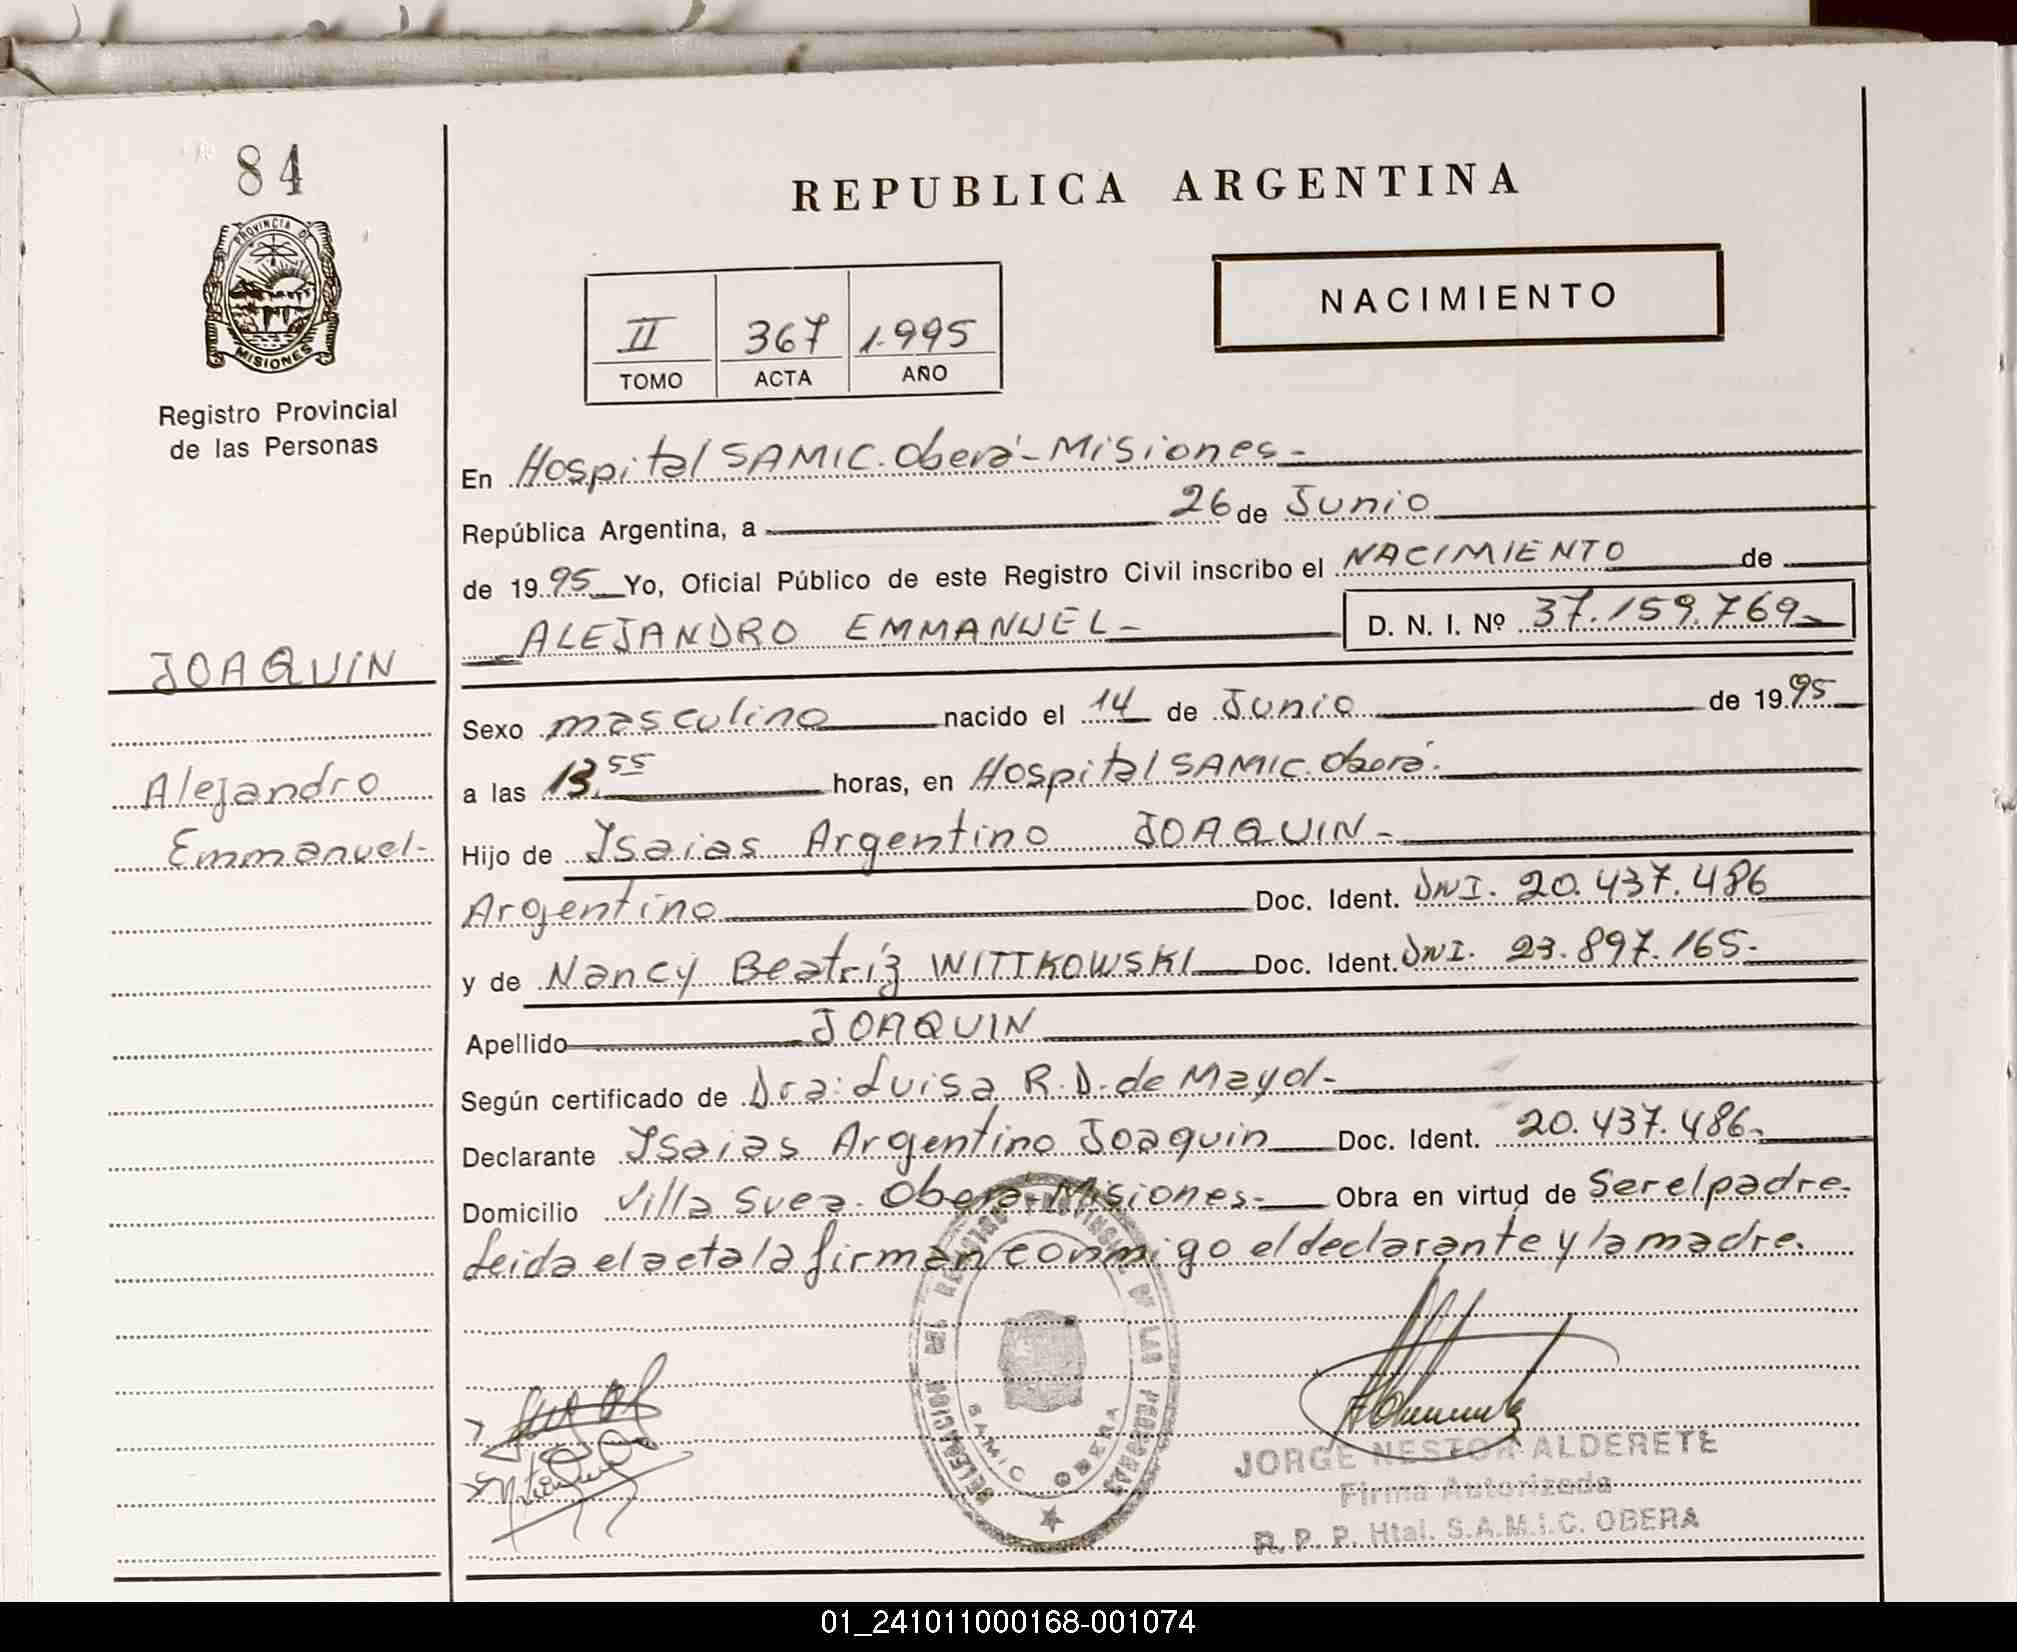 84
PROVINCIA DE
MISIONES
Registro Provincial
de las Personas
JOAQUIN
Alejandro
Emmanuel-
REPUBLICA ARGENTINA
NACIMIENTO
II 367 1.995
TOMO ACTA AÑO
En Hospital SAMIC. Oberá-Misiones-
República Argentina, a 26 de Junio
de 1995 Yo, Oficial Público de este Registro Civil inscribo el NACIMIENTO de
ALEJANDRO EMMANUEL- D. N. I. Nº 37.159.769-
Sexo masculino nacido el 14 de Junio de 1995
a las 13.55 horas, en Hospital SAMIC. Oberá.
Hijo de Isaias Argentino JOAQUIN-
Argentino Doc. Ident. DNI. 20.437.486
y de Nancy Beatríz WITTKOWSKI Doc. Ident. DNI. 23.897.165-
Apellido JOAQUIN
Según certificado de Dra: Luisa R. D. de Mayol-
Declarante Isaias Argentino Joaquin Doc. Ident. 20.437.486-
Domicilio Villa Svea. Oberá-Misiones- Obra en virtud de Ser el padre.
Leida el acta la firman conmigo el declarante y la madre.
DELEGACION 128 REGISTRO PROVINCIAL DE LAS PERSONAS
SAMIC OBERA
JORGE NESTOR ALDERETE
Firma Autorizada
R. P. P. Htal. S.A.M.I.C. OBERA
01_241011000168-001074